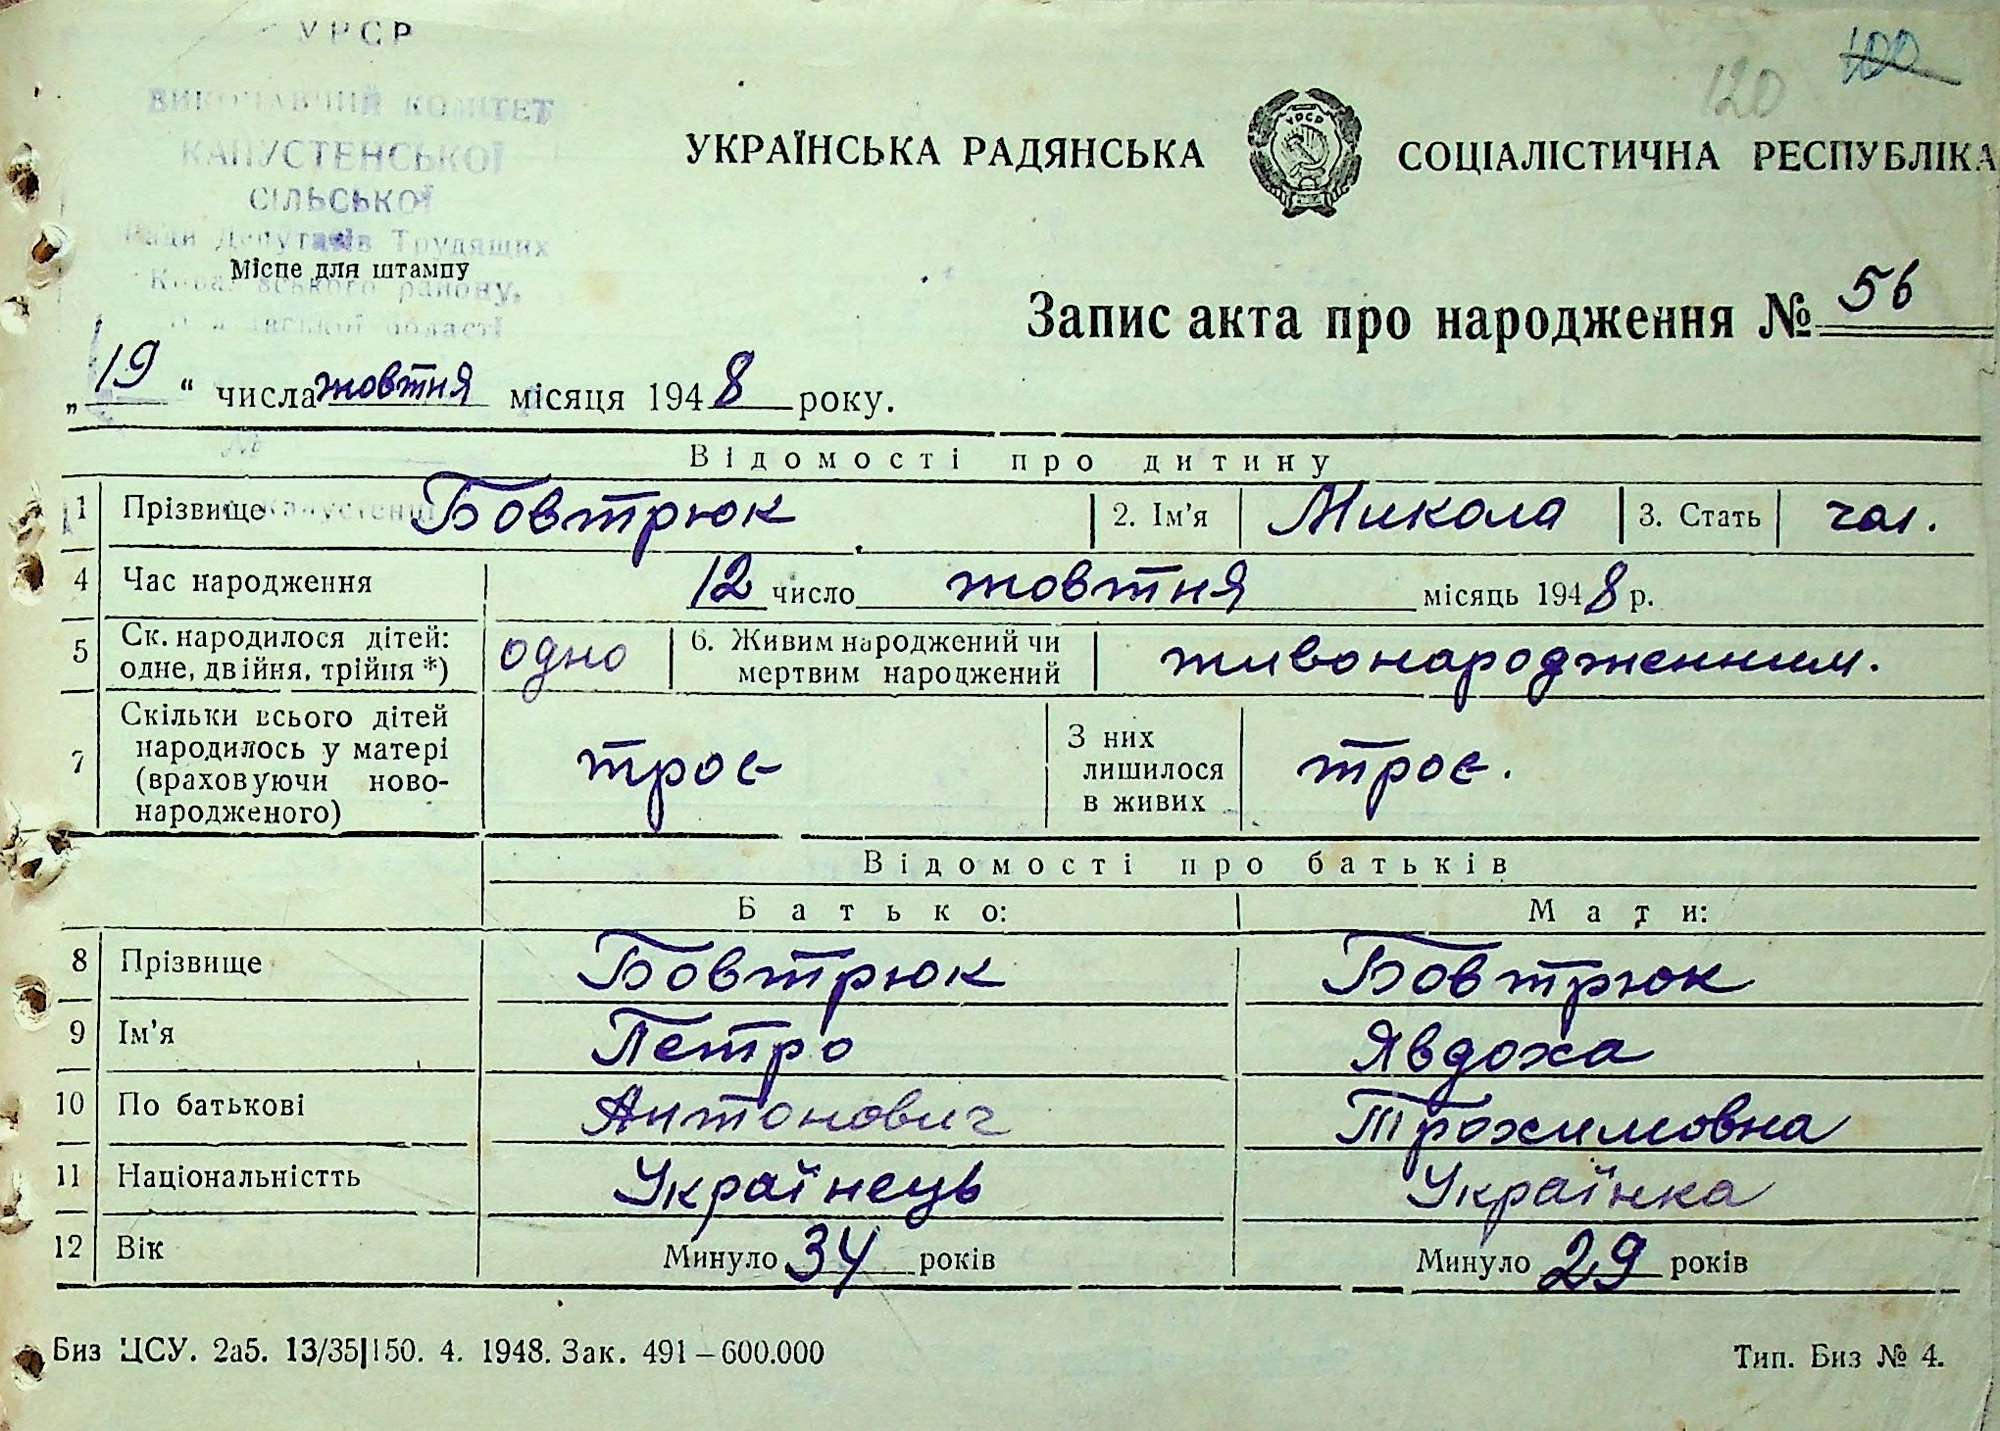 УРСР
ВИКОНАВЧИЙ КОМІТЕТ
КАПУСТЕНСЬКОЇ
СІЛЬСЬКОЇ
Ради Депутатів Трудящих
Місце для штампу
району,
області
120 100
УКРАЇНСЬКА РАДЯНСЬКА УРСР СОЦІАЛІСТИЧНА РЕСПУБЛІКА
Запис акта про народження № 56
„19“ числа жовтня місяця 1948 року.
№
Відомості про дитину
1 Прізвище Бовтрюк 2. Ім'я Микола 3. Стать чол.
4 Час народження 12 число жовтня місяць 1948 р.
5 Ск. народилося дітей: одне, двійня, трійня *) одно 6. Живим народжений чи мертвим народжений живонародженним.
7 Скільки всього дітей народилось у матері (враховуючи новонародженого) троє З них лишилося в живих троє.
Відомості про батьків
Батько: Мати:
8 Прізвище Бовтрюк Бовтрюк
9 Ім'я Петро Явдоха
10 По батькові Антонович Трохимовна
11 Національністть Українець Українка
12 Вік Минуло 34 років Минуло 29 років
Биз ЦСУ. 2а5. 13/35|150. 4. 1948. Зак. 491–600.000 Тип. Биз № 4.